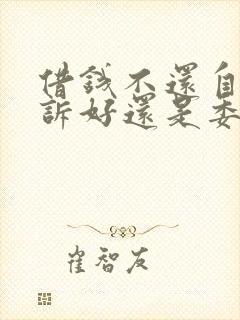 借錢不還自
訴好還是委
崔智友